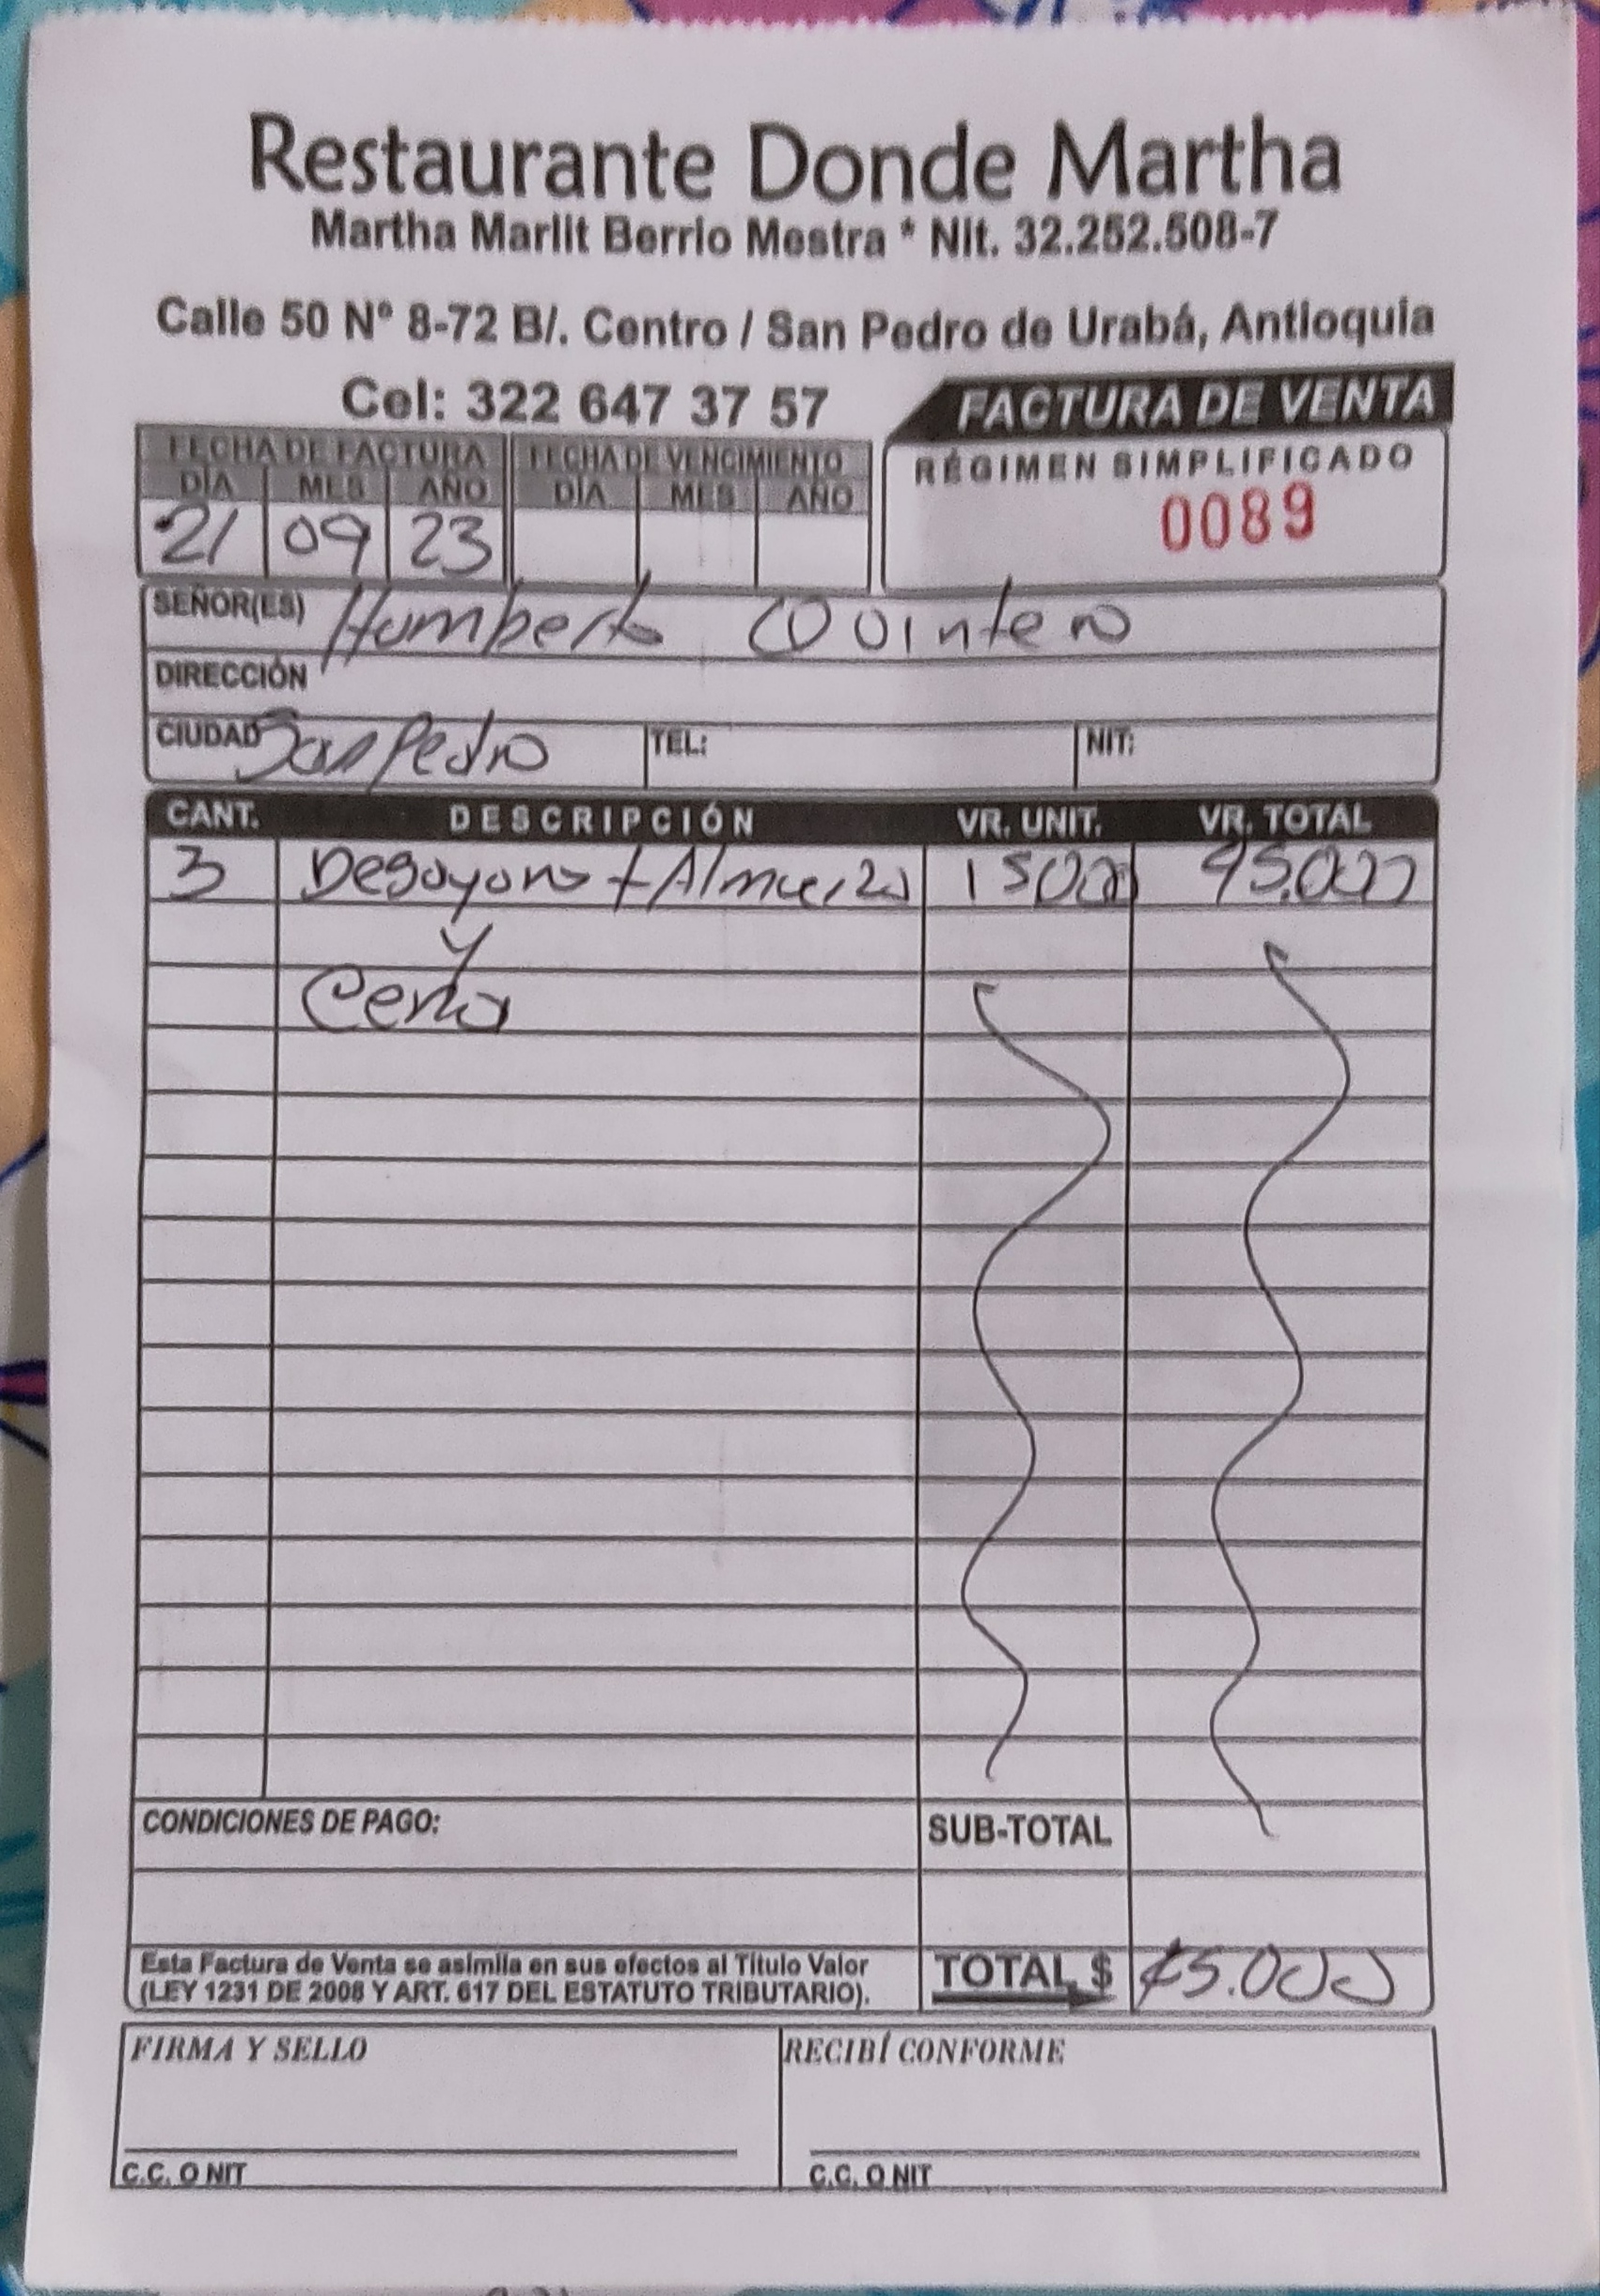 Restaurante Donde Martha
Martha Marlit Berrio Mestra * Nit. 32.252.508-7
Calle 50 N° 8-72 B/. Centro / San Pedro de Urabá, Antioquia
Cel: 322 647 37 57
FACTURA DE VENTA
RÉGIMEN SIMPLIFICADO
0089
FECHA DE FACTURA FECHA DE VENCIMIENTO
DÍA MES AÑO DÍA MES AÑO
21 09 23
SEÑOR(ES) Humberto Quintero
DIRECCIÓN
CIUDAD San Pedro TEL: NIT:
CANT. DESCRIPCIÓN VR. UNIT. VR. TOTAL
3 Desayuno + Almuerzo 15000 45.000
y
Cena
CONDICIONES DE PAGO: SUB-TOTAL
Esta Factura de Venta se asimila en sus efectos al Título Valor
(LEY 1231 DE 2008 Y ART. 617 DEL ESTATUTO TRIBUTARIO).
TOTAL $ 45.000
FIRMA Y SELLO RECIBÍ CONFORME
C.C. O NIT C.C. O NIT